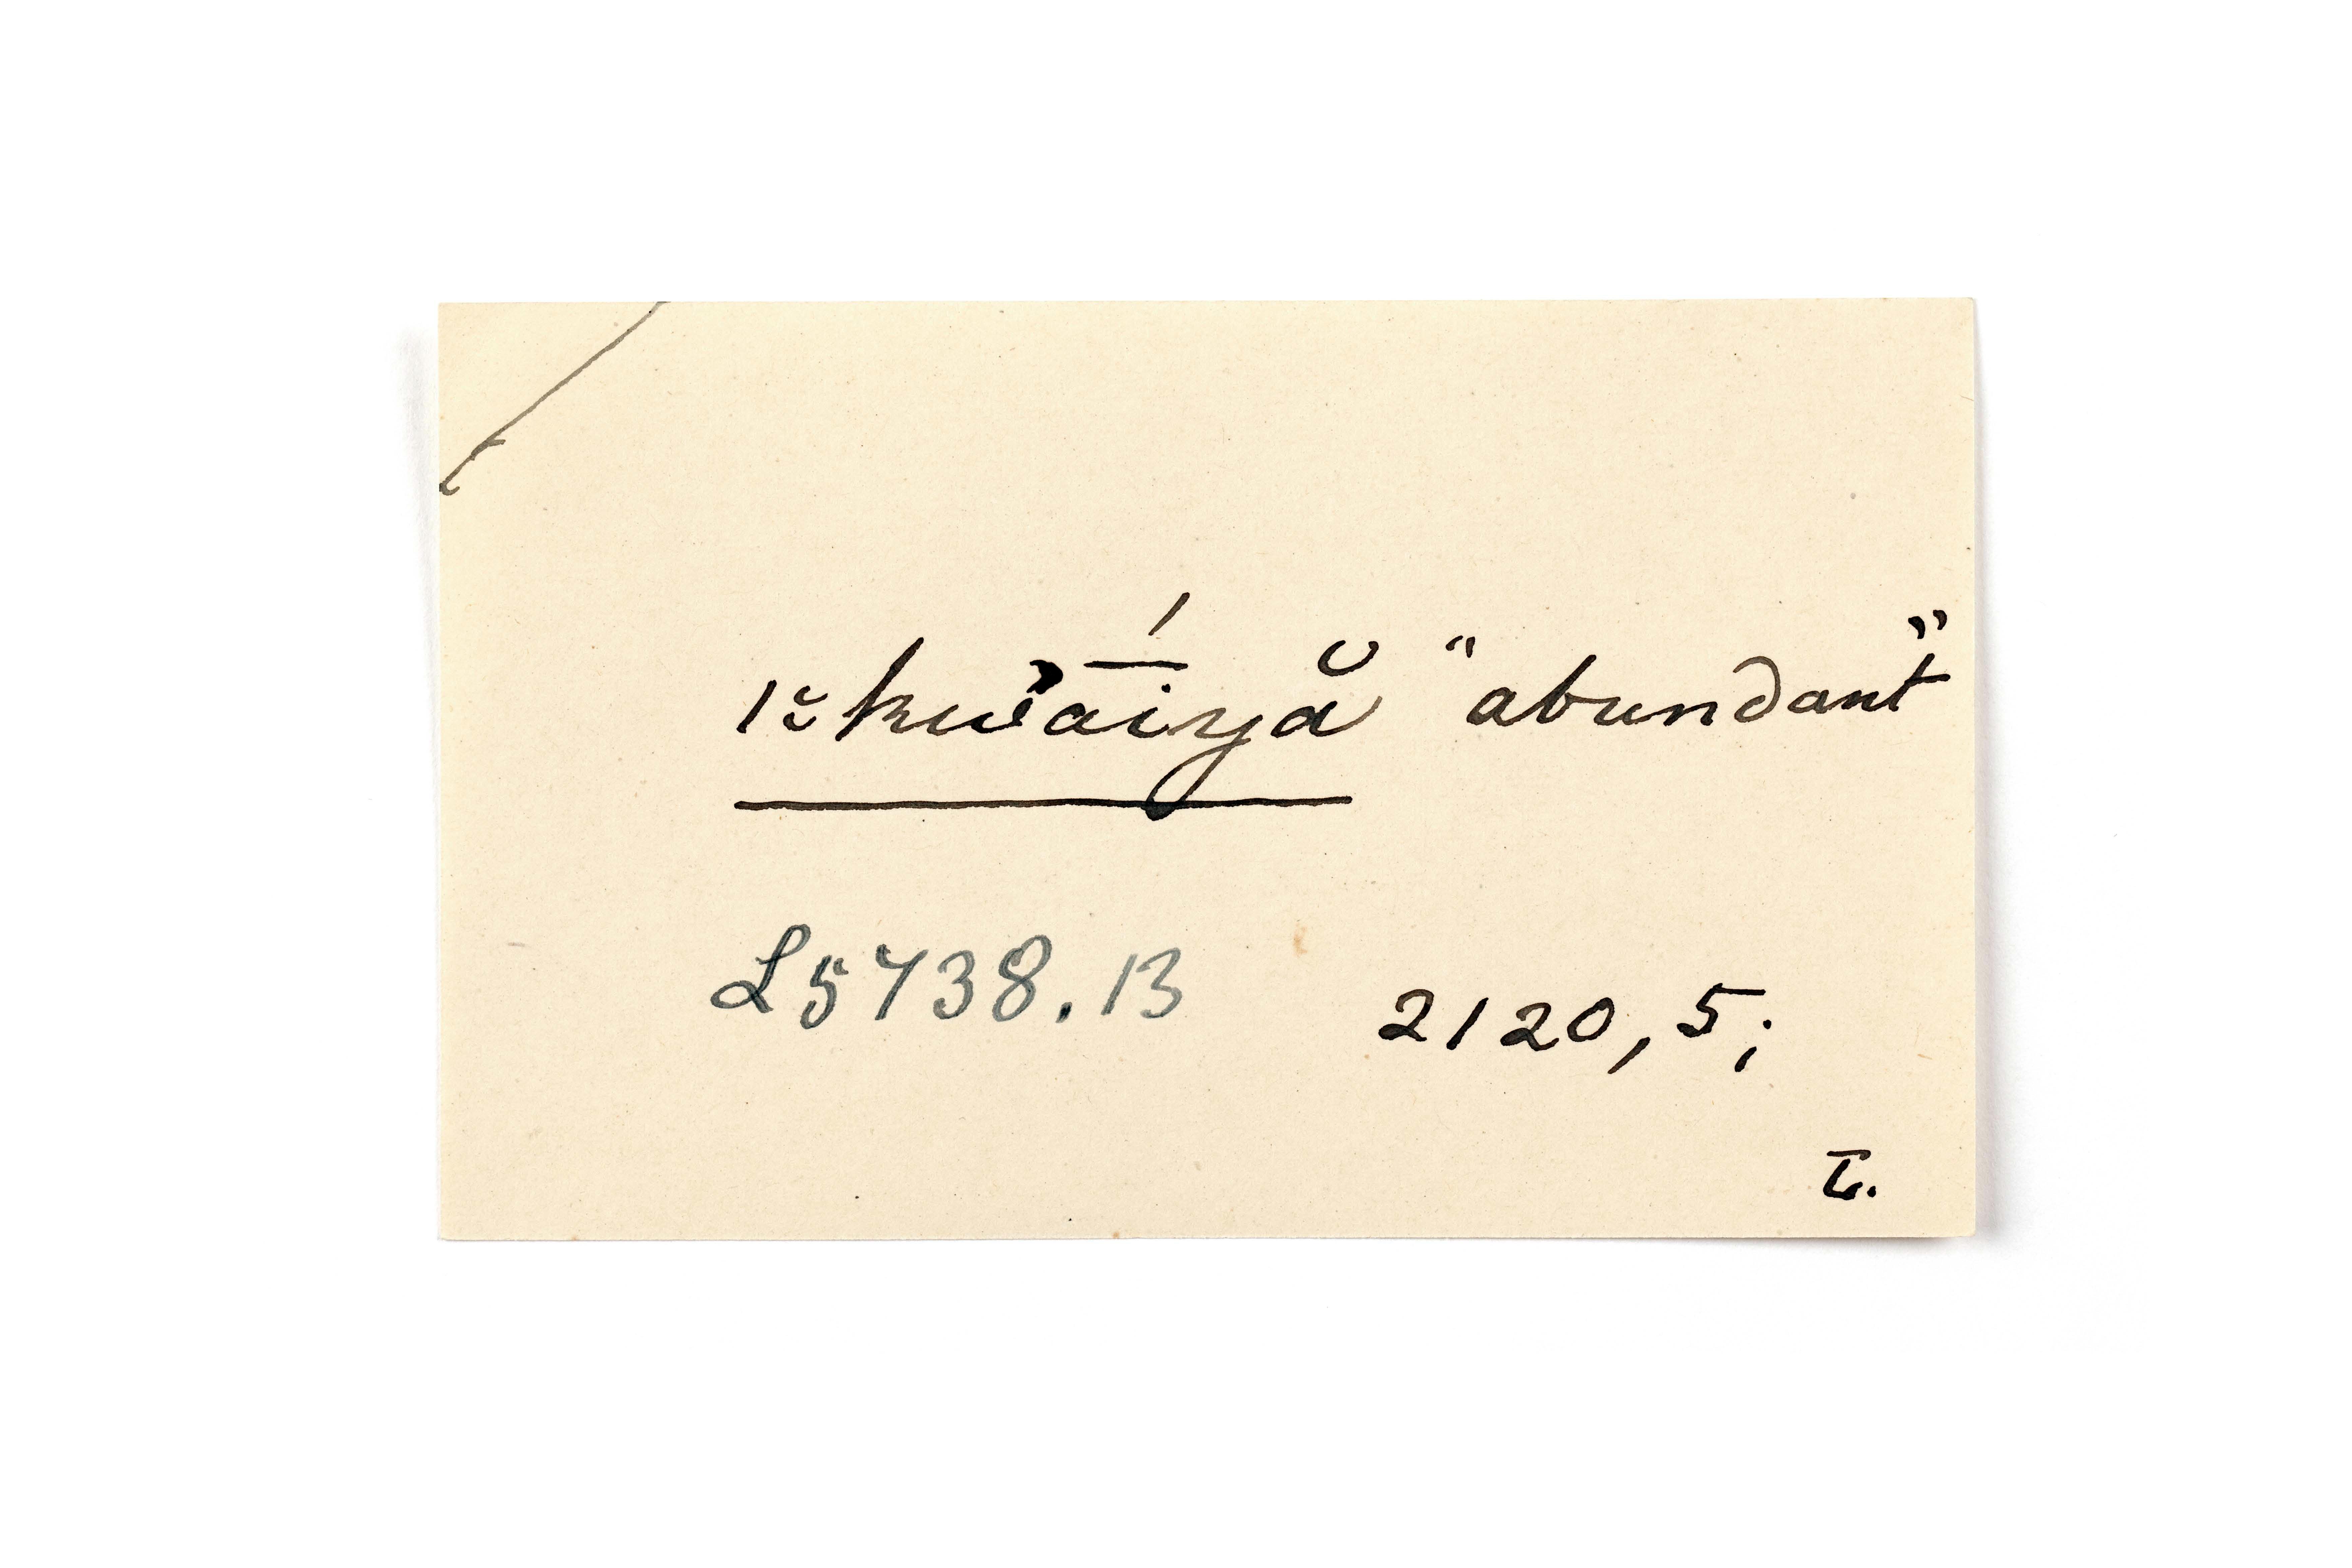 ɩškwā́iyă "abundant"
L5738.13
2120, 5;
T.